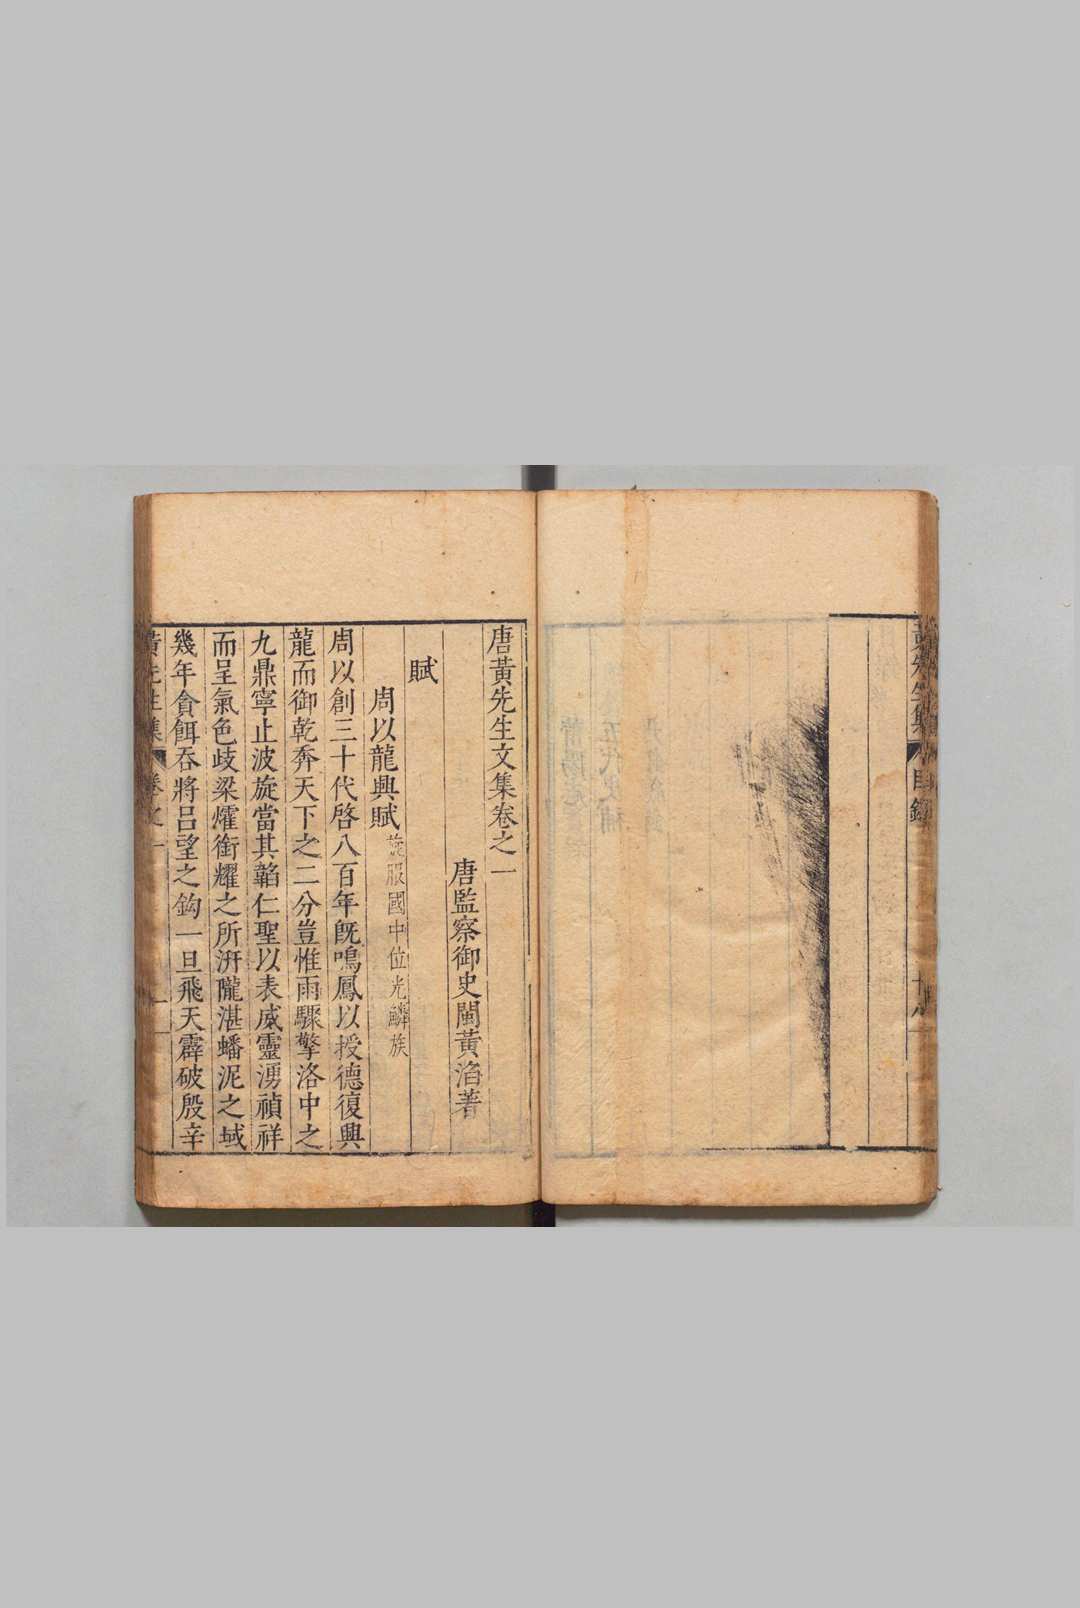 黃先生集
目錄
唐黃先生文集卷之一
唐監察御史閩黃滔著
賦
周以龍興賦
旋服國中位光鱗族
周以創三十代啓八百年旣鳴鳳以授德復興
龍而御乾奔天下之二分豈惟雨驟擎洛中之
九鼎寧止波旋當其韜仁聖以表威靈湧禎祥
而呈氣色歧梁燿銜耀之所汧隴湛蟠泥之域
幾年貪餌吞將吕望之鈎一旦飛天霹破殷辛
黃先生集
卷之一